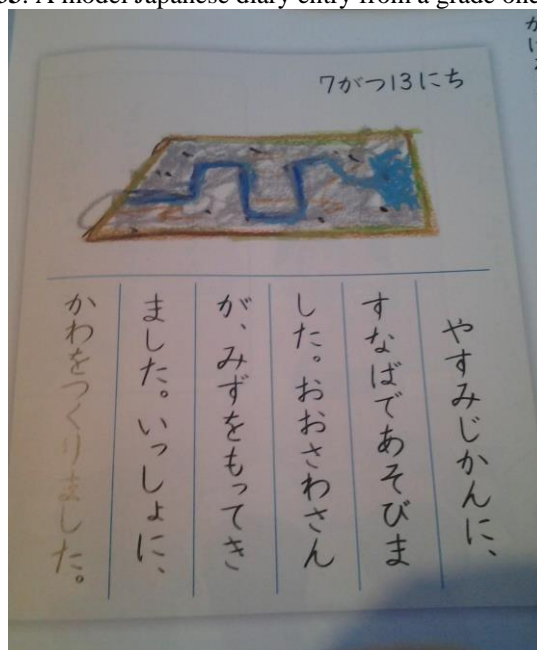 A model Japanese diary entry from a grade one
7がつ13にち
やすみじかんに、
すなばであそびま
した。おおさわさん
が、みずをもってき
ました。いっしょに、
かわをつくりました。